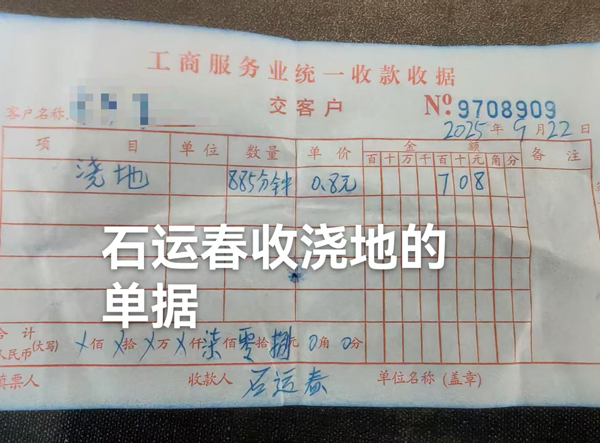 工商服务业统一收款收据
客户名称: 交客户 № 9708909
2025年9月22日
项目 单位 数量 单价 金额 备注
百十万千百十元角分
浇地 885分钟 0.8元 708
石运春收浇地的
单据
合计
人民币(大写) X佰X拾X万X仟柒佰零拾捌元0角0分
填票人 收款人 石运春 单位名称(盖章)